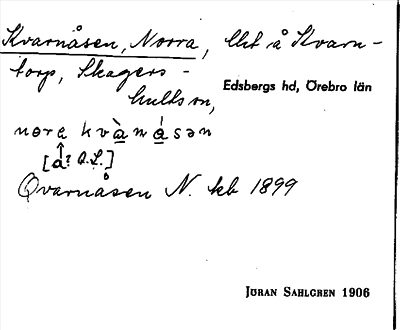 Kvarnåsen, Norra, lht å Kvarn-
torp, Skagers-
hults sn,
Edsbergs hd, Örebro län
nora kvànásən
[a? O.L.]
Qvarnåsen N. kb 1899
JÖRAN SAHLGREN 1906